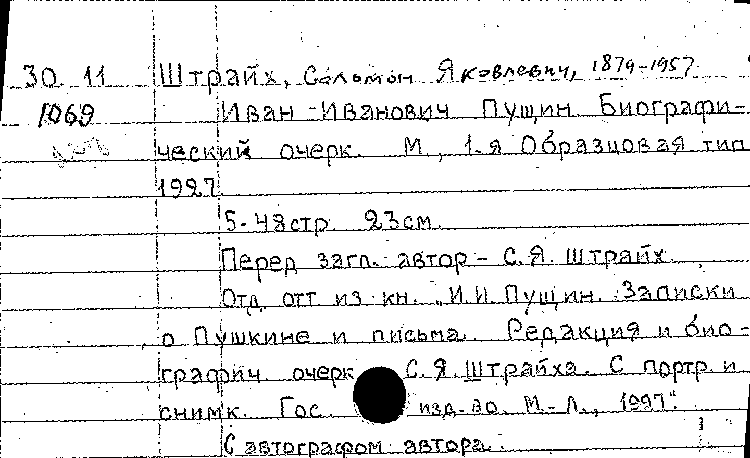 30 11 Штрайх, Соломон Яковлевич, 1879-1957
1069 Иван Иванович Пущин Биографи-
ческий очерк. М., 1-я Образцовая тип
1927
5-48 стр 23 см.
Перед загл. автор - С.Я. Штрайх.
Отд. отт из кн. "И.И. Пущин. Записки
о Пушкине и письма. Редакция и био-
графич. очерк С.Я. Штрайха. С портр. и
снимк. Гос. изд-во. М.-Л., 1927".
С автографом автора.